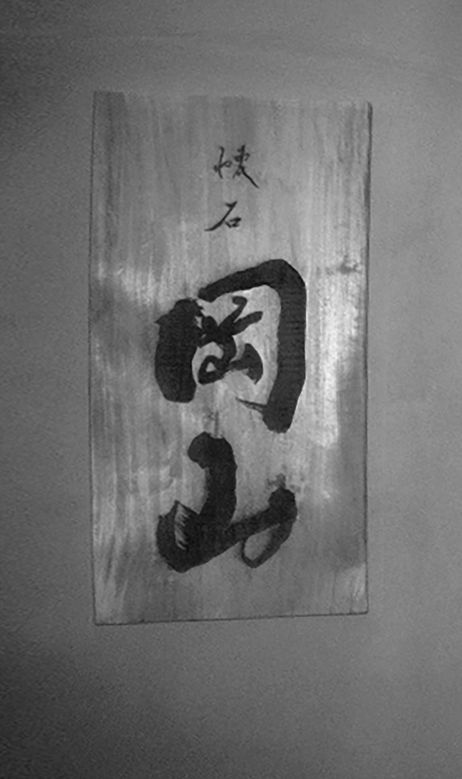 懐石
岡山